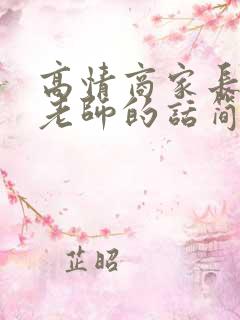 高情商家長
老師的話簡
芷昭